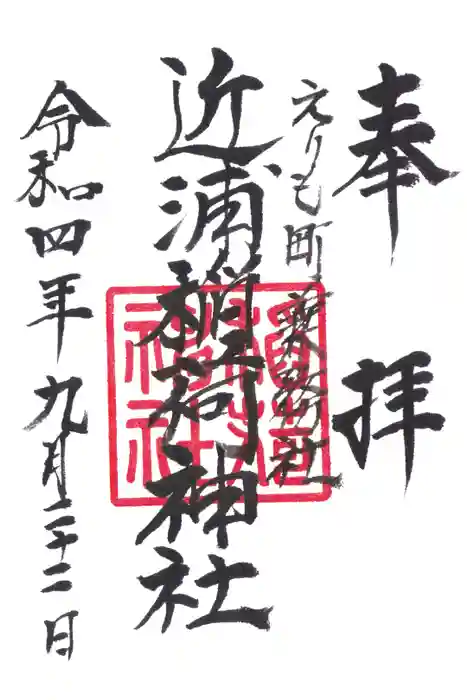 奉拝
えりも町
近浦稲荷神社
稲荷神社
令和四年九月二十二日